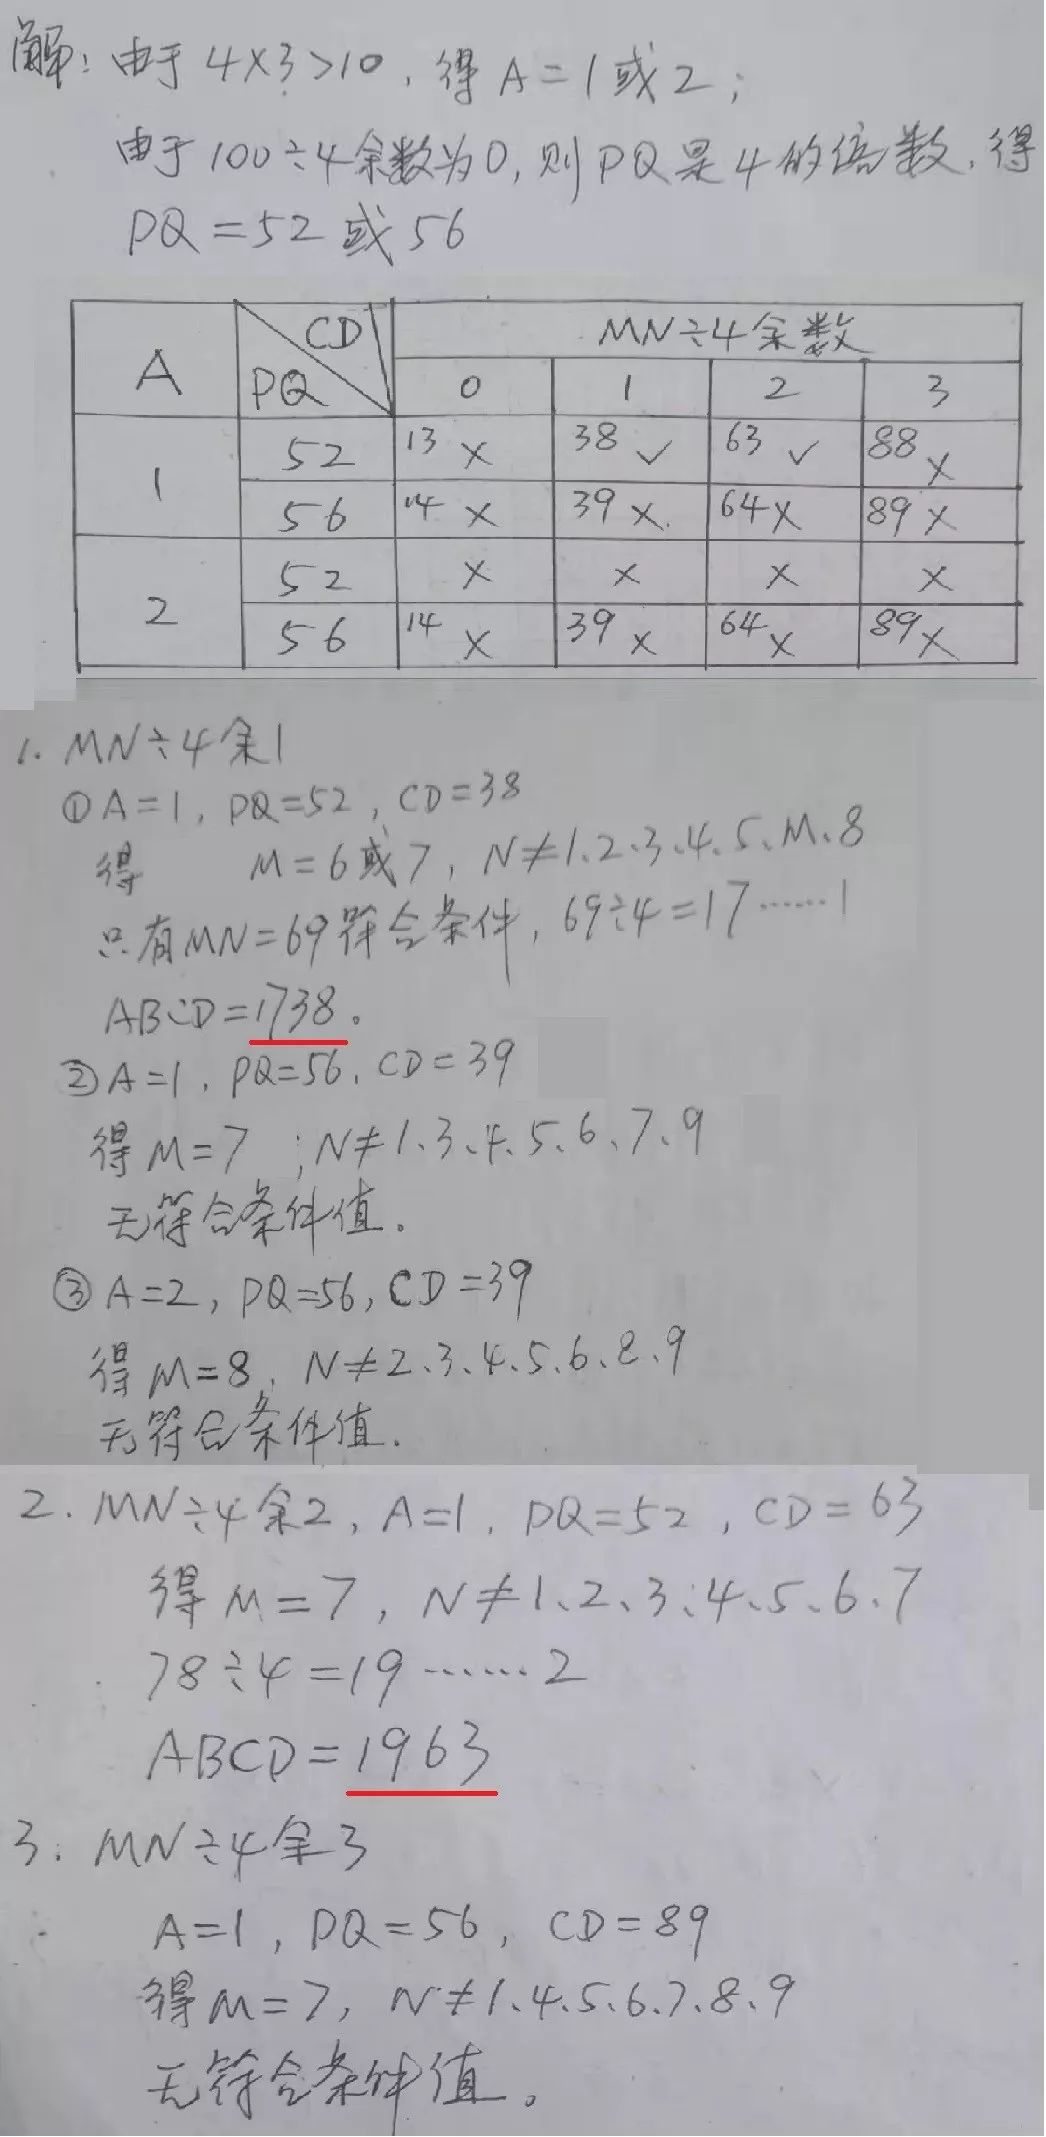 解：由于 4×3>10，得 A=1或2；
由于100÷4余数为0，则PQ是4的倍数，得
PQ=52或56
A
CD
PQ
MN÷4余数
0 1 2 3
1
52 13 × 38 ✓ 63 ✓ 88 ×
56 14 × 39 × 64 × 89 ×
2
52 × × × ×
56 14 × 39 × 64 × 89 ×
1. MN÷4余1
①A=1，PQ=52，CD=38
得 M=6或7，N≠1.2.3.4.5、M、8
只有MN=69符合条件，69÷4=17……1
ABCD=1738。
②A=1，PQ=56，CD=39
得M=7；N≠1、3、4、5、6、7、9
无符合条件值．
③A=2，PQ=56，CD=39
得M=8，N≠2、3、4、5、6、8、9
无符合条件值．
2．MN÷4余2，A=1，PQ=52，CD=63
得M=7，N≠1、2、3、4、5、6、7
78÷4=19……2
ABCD=1963
3．MN÷4余3
A=1，PQ=56，CD=89
得M=7，N≠1、4、5、6、7、8、9
无符合条件值。